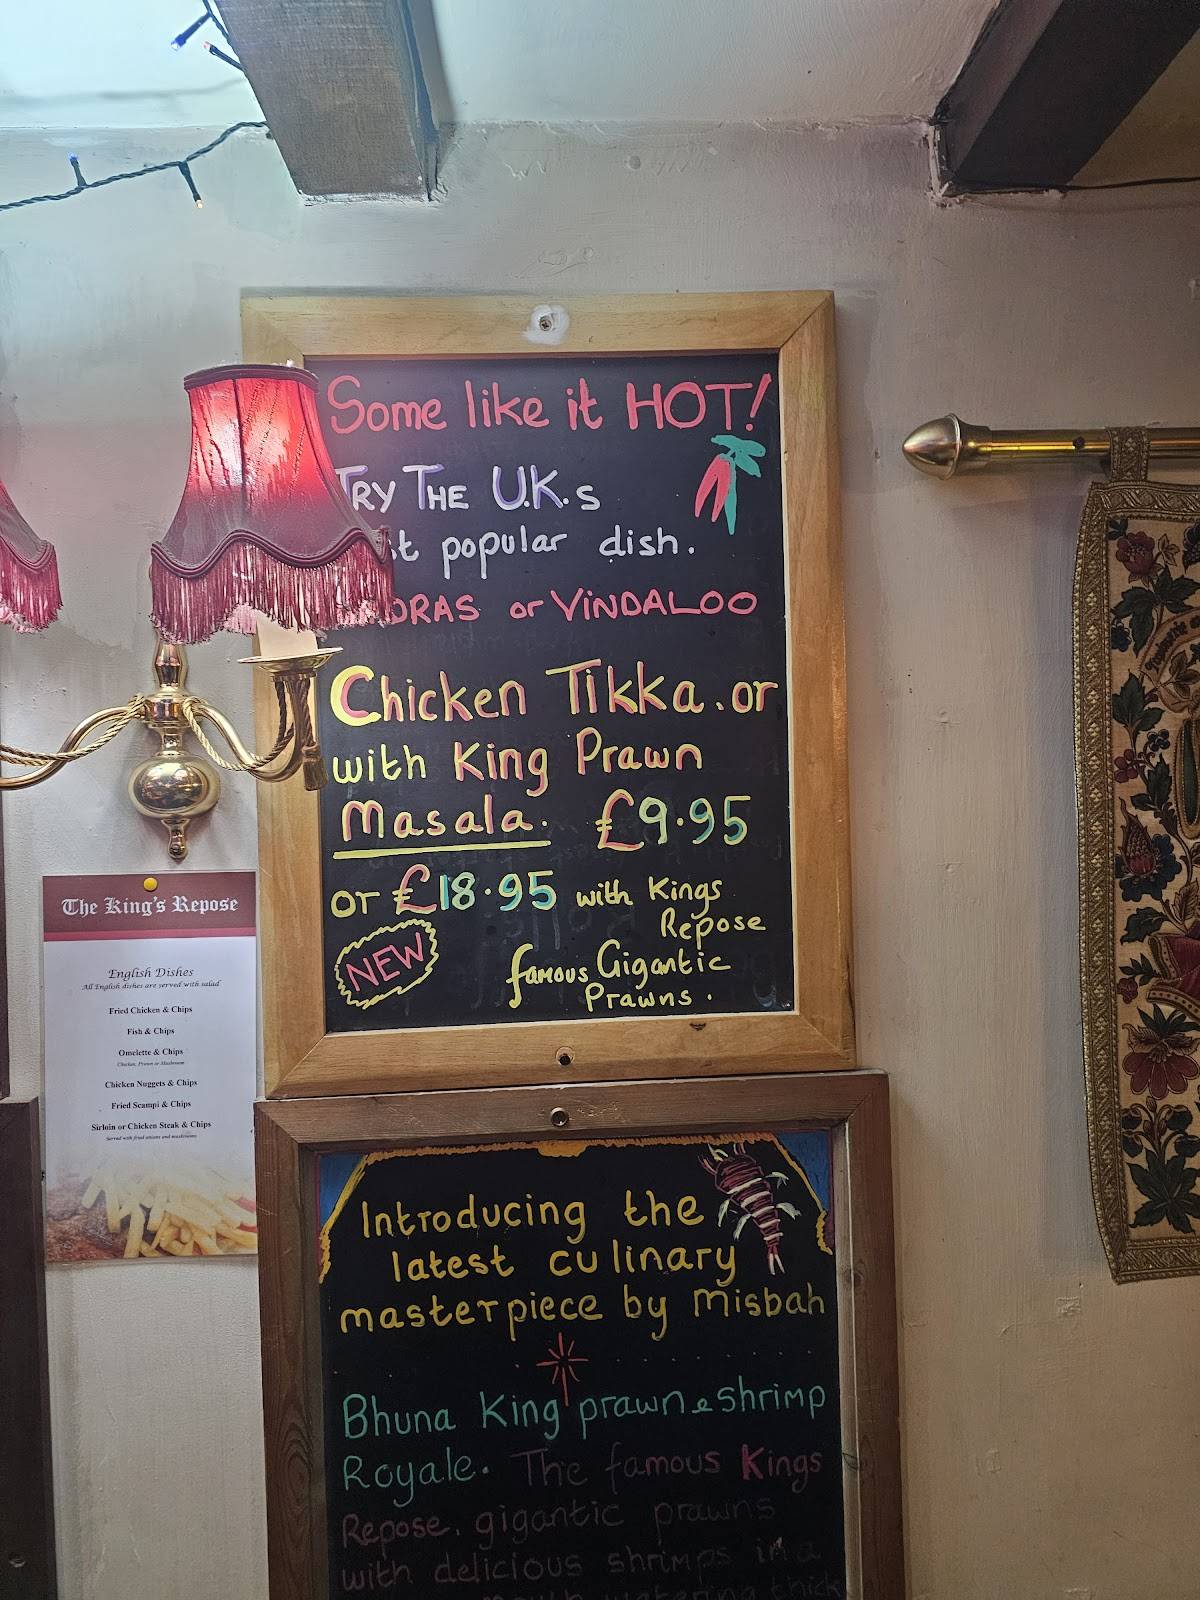 Some like it HOT!
TRY THE U.K.s
popular dish.
or VINDALOO
Chicken Tikka. or
with King Prawn
Masala. £9.95
or £18.95 with Kings
Repose
NEW
famous Gigantic
Prawns.
The King's Repose
English Dishes
All English dishes are served with salad
Fried Chicken & Chips
Fish & Chips
Omelette & Chips
Chicken, Prawn or Mushroom
Chicken Nuggets & Chips
Fried Scampi & Chips
Sirloin or Chicken Steak & Chips
Served with fried onions and mushrooms
Introducing the
latest culinary
masterpiece by Misbah
Bhuna King prawn & shrimp
Royale. The famous Kings
Repose. gigantic prawns
with delicious shrimps in a
mouth watering thick